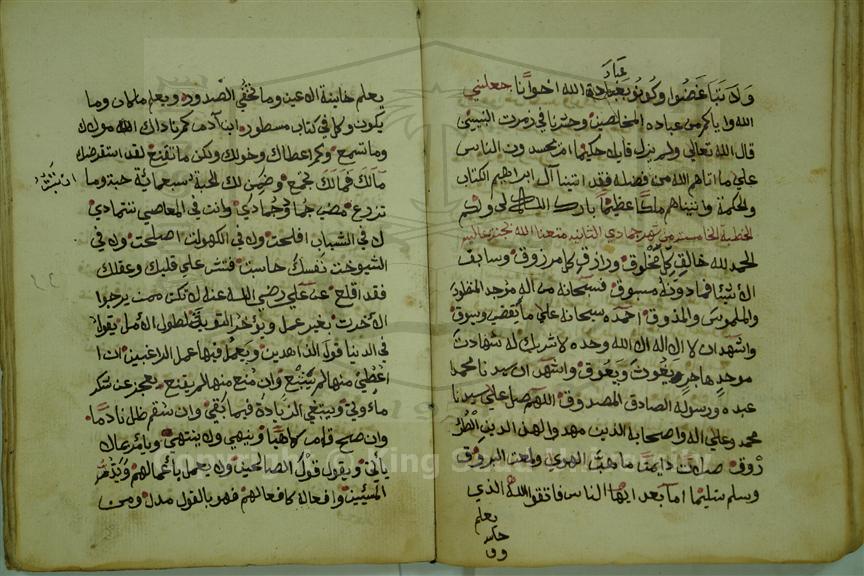 عباد
ولا تباغضوا وكونوا بعبادة الله اخوانا جعلني
الله واياكم من عباده المخلصين وحشرنا في زمرت النبيين
قال الله تعالى ولم يزل قايلا حكيما ام يحسدون الناس
على ما اتاهم الله من فضله فقد اتينا آل ابراهيم الكتاب
والحكمة واتيناهم ملكا عظيما بارك الله لي ولكم
الخطبة الخامسة من شهر جمادي الثانية متعنا الله
الحمد لله خالق كل مخلوق ورازق كل مرزوق وسابق
الاشيا فما دونه مسبوق فسبحانه من اله موجد المنطوق
والملموس والمذوق احمده سبحانه على ما يقضي ويسوق
واشهد ان لا اله الا الله وحده لا شريك له شهادت
موحد هاجر يغوث ويعوق واشهد ان سيدنا محمدا
عبده ورسوله الصادق المصدوق اللهم صل على سيدنا
محمد وعلى اله واصحابه الذين مهدوا لهذ الدين الطر
روق صلات دايمة ما هب الهوى ولمعت البروق
وسلم تسليما اما بعد ايها الناس فاتقوا الله الذي
يعلم
يعلم خاينة الاعين وما تخفي الصدور ويعلم ما كان وما
يكون وكل في كتاب مسطور ابن آدم كم ناداك الله مولاك
وما تسمع وكم اعطاك وخولك ولكن ما تقنع لقد استقرضك
مالك فمالك تجمع وضمن لك الحبة بسبعمائة حبة وما
تزرع مضى جماد وجمادي وانت في المعاصي تتمادي
لا في الشباب افلحت ولا في الكهولت اصلحت ولا في
الشيوخت نفسك حاسبت فتش على قلبك وعقلك
فقد اقلع عن علي رضي الله عنه لا تكن ممن يرجوا
الاخرت بغير عمل ويؤخر التوبة لطول الامل يقول
في الدنيا قول الزاهدين ويعمل فيها عمل الراغبين ان ا
اعطي منها لم يشبع وان منع منها لم يقنع يعجز عن شكر
ما اوتي ويبتغي الزيادة فيما بقي وان سقم ظل نادما
وان صح قام لاهيا وينهى ولا ينتهي ويامر بما لا
ياتي ويقول قول الصالحين ولا يعمل باعمالهم ويذم
المسيئين وافعاله كافعالهم فهو بالقول مدل ومن